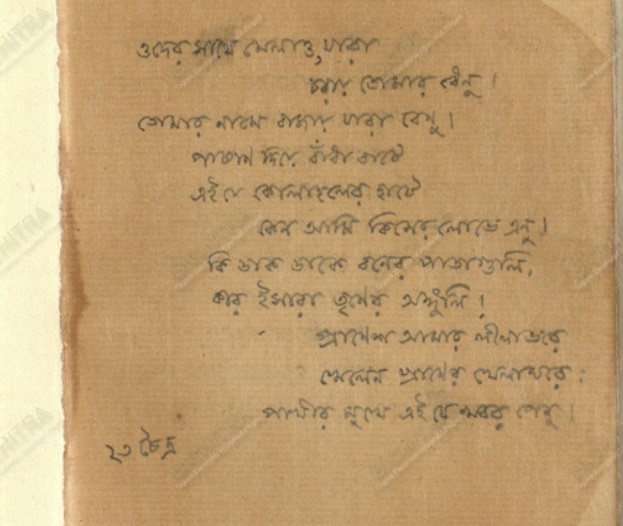 ওদের সাথে মেলাও, যারা
চরায় তোমার ধেনু।
তোমার নামে বাজায় যারা বেণু।
পাষাণ দিয়ে বাঁধা ঘাটে
এই যে কোলাহলের হাটে
কেন আমি কিসের লোভে এনু।
কি ডাক ডাকে বনের পাতাগুলি,
কার ইসারা তৃণের অঙ্গুলি!
প্রাণেশ আমার লীলাভরে
খেলেন প্রাণের খেলাঘরে:
পাখীর মুখে এই যে খবর পেনু।
২৩ চৈত্র